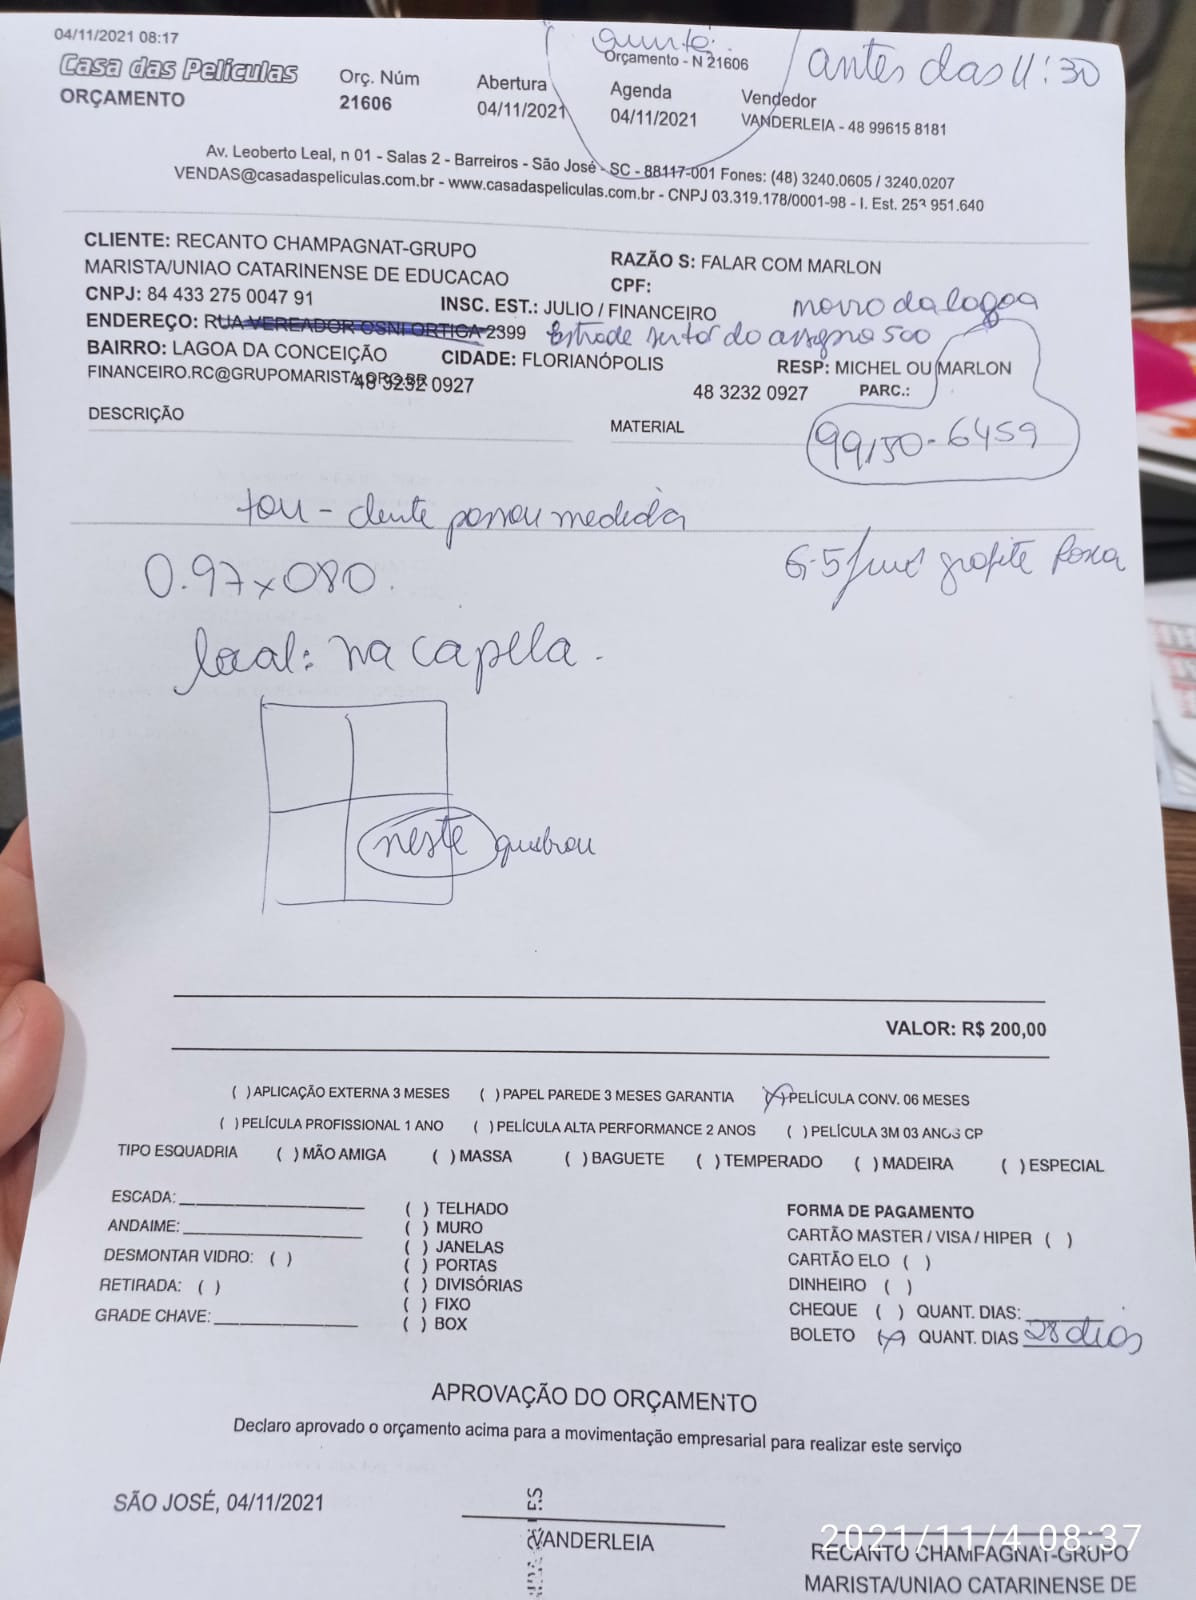 04/11/2021 08:17
quinta.
Orçamento - N 21606
antes das 11:30
Casa das Películas
ORÇAMENTO
Orç. Núm
21606
Abertura
04/11/2021
Agenda
04/11/2021
Vendedor
VANDERLEIA - 48 99615 8181
Av. Leoberto Leal, n 01 - Salas 2 - Barreiros - São José - SC - 88117-001 Fones: (48) 3240.0605 / 3240.0207
VENDAS@casadaspeliculas.com.br - www.casadaspeliculas.com.br - CNPJ 03.319.178/0001-98 - I. Est. 253 951.640
CLIENTE: RECANTO CHAMPAGNAT-GRUPO
MARISTA/UNIAO CATARINENSE DE EDUCACAO
RAZÃO S: FALAR COM MARLON
CPF:
CNPJ: 84 433 275 0047 91
INSC. EST.: JULIO / FINANCEIRO
morro da lagoa
ENDEREÇO: RUA VEREADOR OSNI ORTIGA 2399
500
BAIRRO: LAGOA DA CONCEIÇÃO
CIDADE: FLORIANÓPOLIS
RESP: MICHEL OU MARLON
FINANCEIRO.RC@GRUPOMARISTA.ORG.BR
48 3232 0927
48 3232 0927
PARC.:
DESCRIÇÃO
MATERIAL
99150-6459
cliente passou medida
0.97x080.
G-5 fumê grafite
local: na capela.
neste quebrou
VALOR: R$ 200,00
( ) APLICAÇÃO EXTERNA 3 MESES ( ) PAPEL PAREDE 3 MESES GARANTIA (X) PELÍCULA CONV. 06 MESES
( ) PELÍCULA PROFISSIONAL 1 ANO ( ) PELÍCULA ALTA PERFORMANCE 2 ANOS ( ) PELÍCULA 3M 03 ANOS CP
TIPO ESQUADRIA ( ) MÃO AMIGA ( ) MASSA ( ) BAGUETE ( ) TEMPERADO ( ) MADEIRA ( ) ESPECIAL
ESCADA:
ANDAIME:
DESMONTAR VIDRO: ( )
RETIRADA: ( )
GRADE CHAVE:
( ) TELHADO
( ) MURO
( ) JANELAS
( ) PORTAS
( ) DIVISÓRIAS
( ) FIXO
( ) BOX
FORMA DE PAGAMENTO
CARTÃO MASTER / VISA / HIPER ( )
CARTÃO ELO ( )
DINHEIRO ( )
CHEQUE ( ) QUANT. DIAS:
BOLETO (X) QUANT. DIAS 28 dias
APROVAÇÃO DO ORÇAMENTO
Declaro aprovado o orçamento acima para a movimentação empresarial para realizar este serviço
SÃO JOSÉ, 04/11/2021
VANDERLEIA
2021/11/4 08:37
RECANTO CHAMPAGNAT-GRUPO
MARISTA/UNIAO CATARINENSE DE